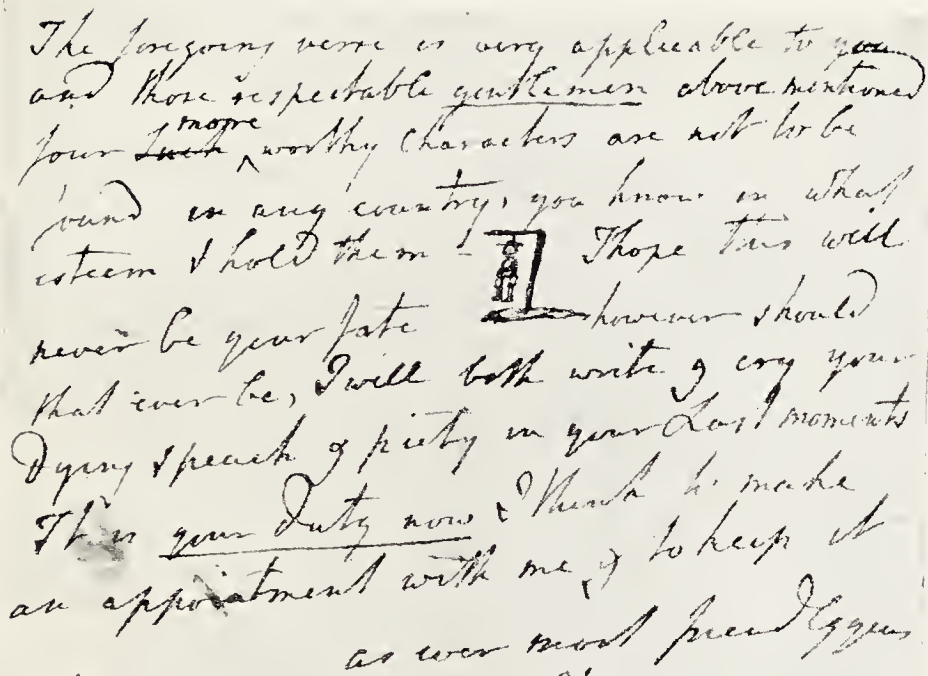 The foregoing verse is very applicable to you
and those respectable gentlemen above mentioned
four such more worthy Characters are not to be
found in any country, you know in what
esteem I hold them - I hope this will
never be your fate however should
that ever be, I will both write & cry your
Dying speach & piety in your Last moments
It is your Duty now I think to make
an appointment with me, & to keep it
as ever most